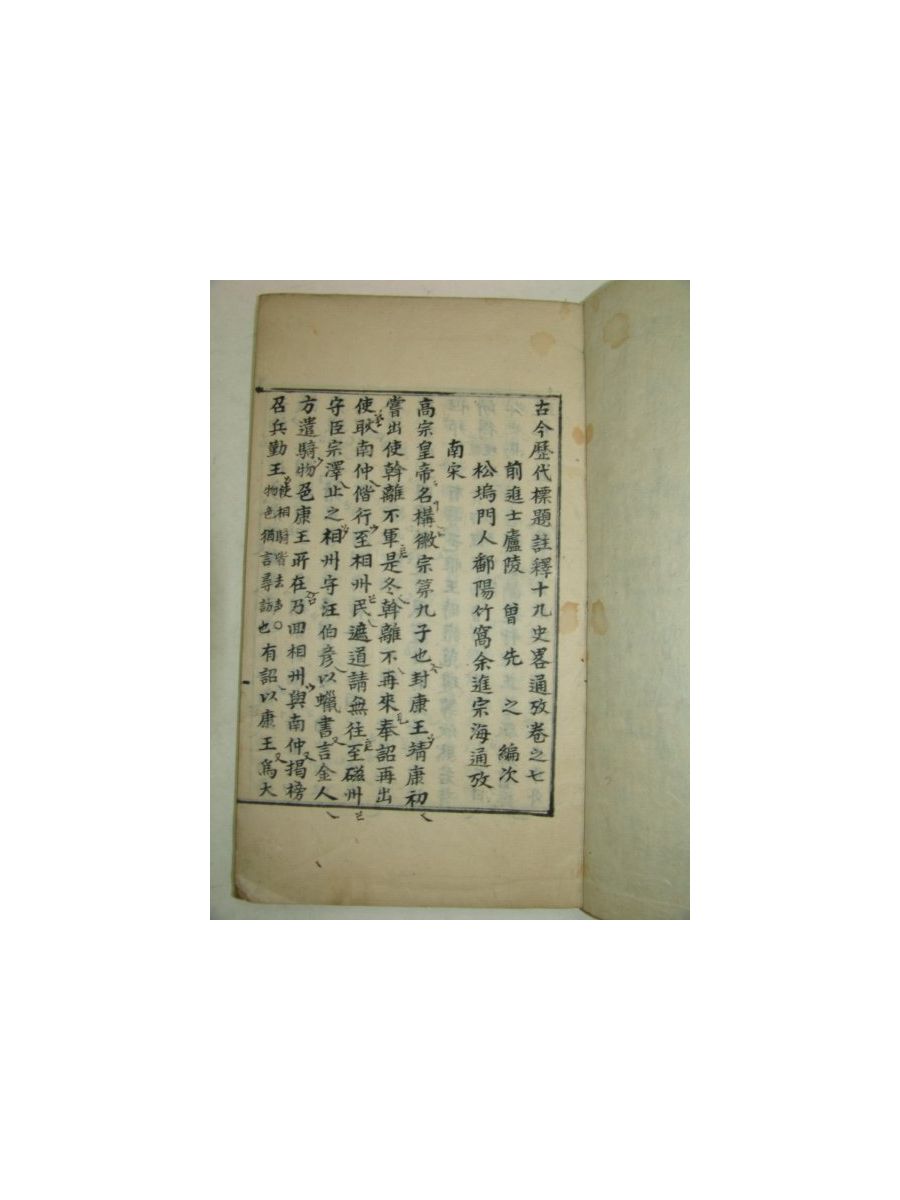 古今歷代標題註釋十九史畧通攷卷之七
前進士廬陵 曾 先 之 編次
松塢門人鄱陽竹窩余進宗海通攷
南宋
高宗皇帝名構徽宗第九子也封康王靖康初
嘗出使斡離不軍是冬斡離不再來奉詔再出
使耿南仲偕行至相州民遮道請無往至磁州
守臣宗澤止之相州守汪伯彦以蠟書言金人
方遣騎物色康王所在乃回相州與南仲揭榜
召兵勤王使相騎皆去声〇物色猶言尋訪也有詔以康王爲大